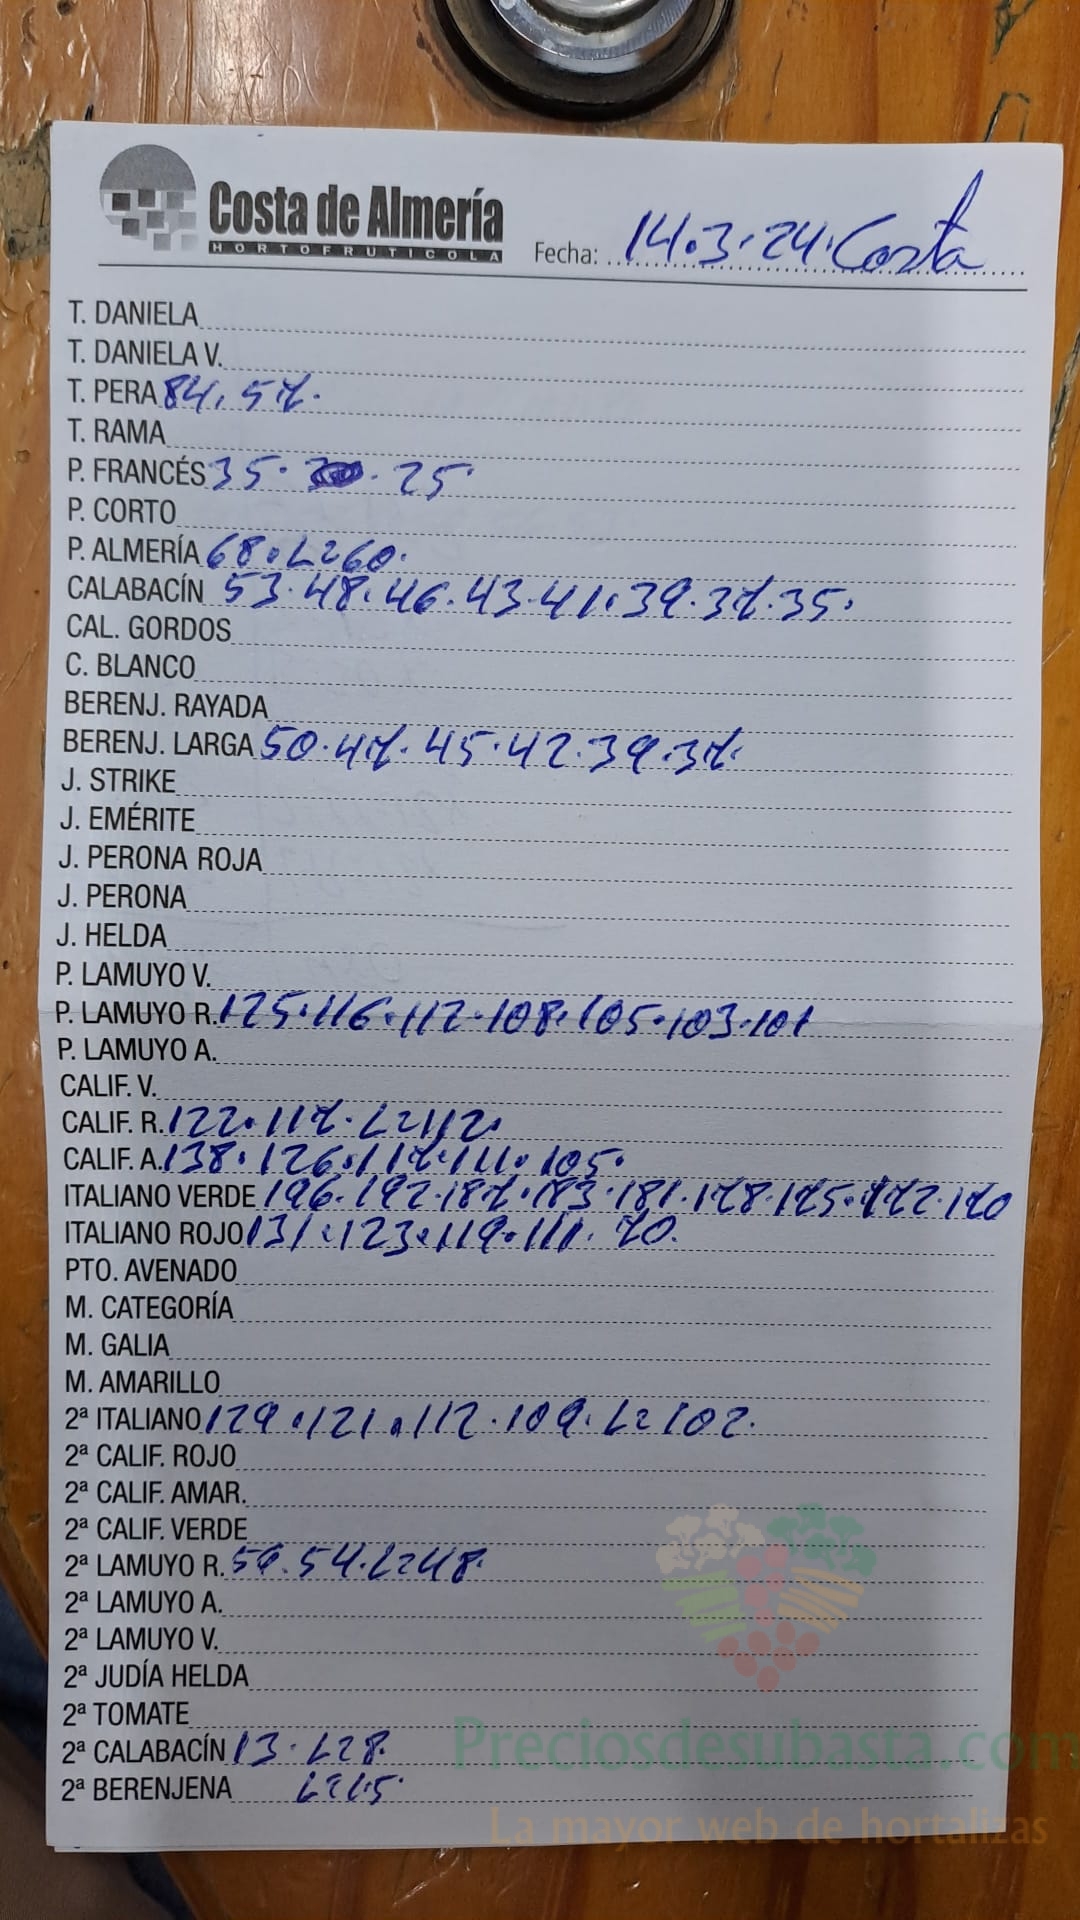 Costa de Almería
HORTOFRUTICOLA
Fecha: 14.3.24. Costa
T. DANIELA
T. DANIELA V.
T. PERA 84. 57.
T. RAMA
P. FRANCÉS 35. 25
P. CORTO
P. ALMERÍA 68. L=60.
CALABACÍN 53.48.46.43.41.39.37.35.
CAL. GORDOS
C. BLANCO
BERENJ. RAYADA
BERENJ. LARGA 50.47.45.42.39.37.
J. STRIKE
J. EMÉRITE
J. PERONA ROJA
J. PERONA
J. HELDA
P. LAMUYO V.
P. LAMUYO R. 125.116.112.108.105.103.101
P. LAMUYO A.
CALIF. V.
CALIF. R. 122.117. L=112.
CALIF. A. 138.126.117.111.105.
ITALIANO VERDE 196.192.187.183.181.178.175.172.170
ITALIANO ROJO 131.123.119.111.70.
PTO. AVENADO
M. CATEGORÍA
M. GALIA
M. AMARILLO
2ª ITALIANO 129.121.112.109. L=102.
2ª CALIF. ROJO
2ª CALIF. AMAR.
2ª CALIF. VERDE
2ª LAMUYO R. 54. L=48.
2ª LAMUYO A.
2ª LAMUYO V.
2ª JUDÍA HELDA
2ª TOMATE
2ª CALABACÍN 13. L=8.
2ª BERENJENA L=15
Preciosdesubasta.com
La mayor web de hortalizas